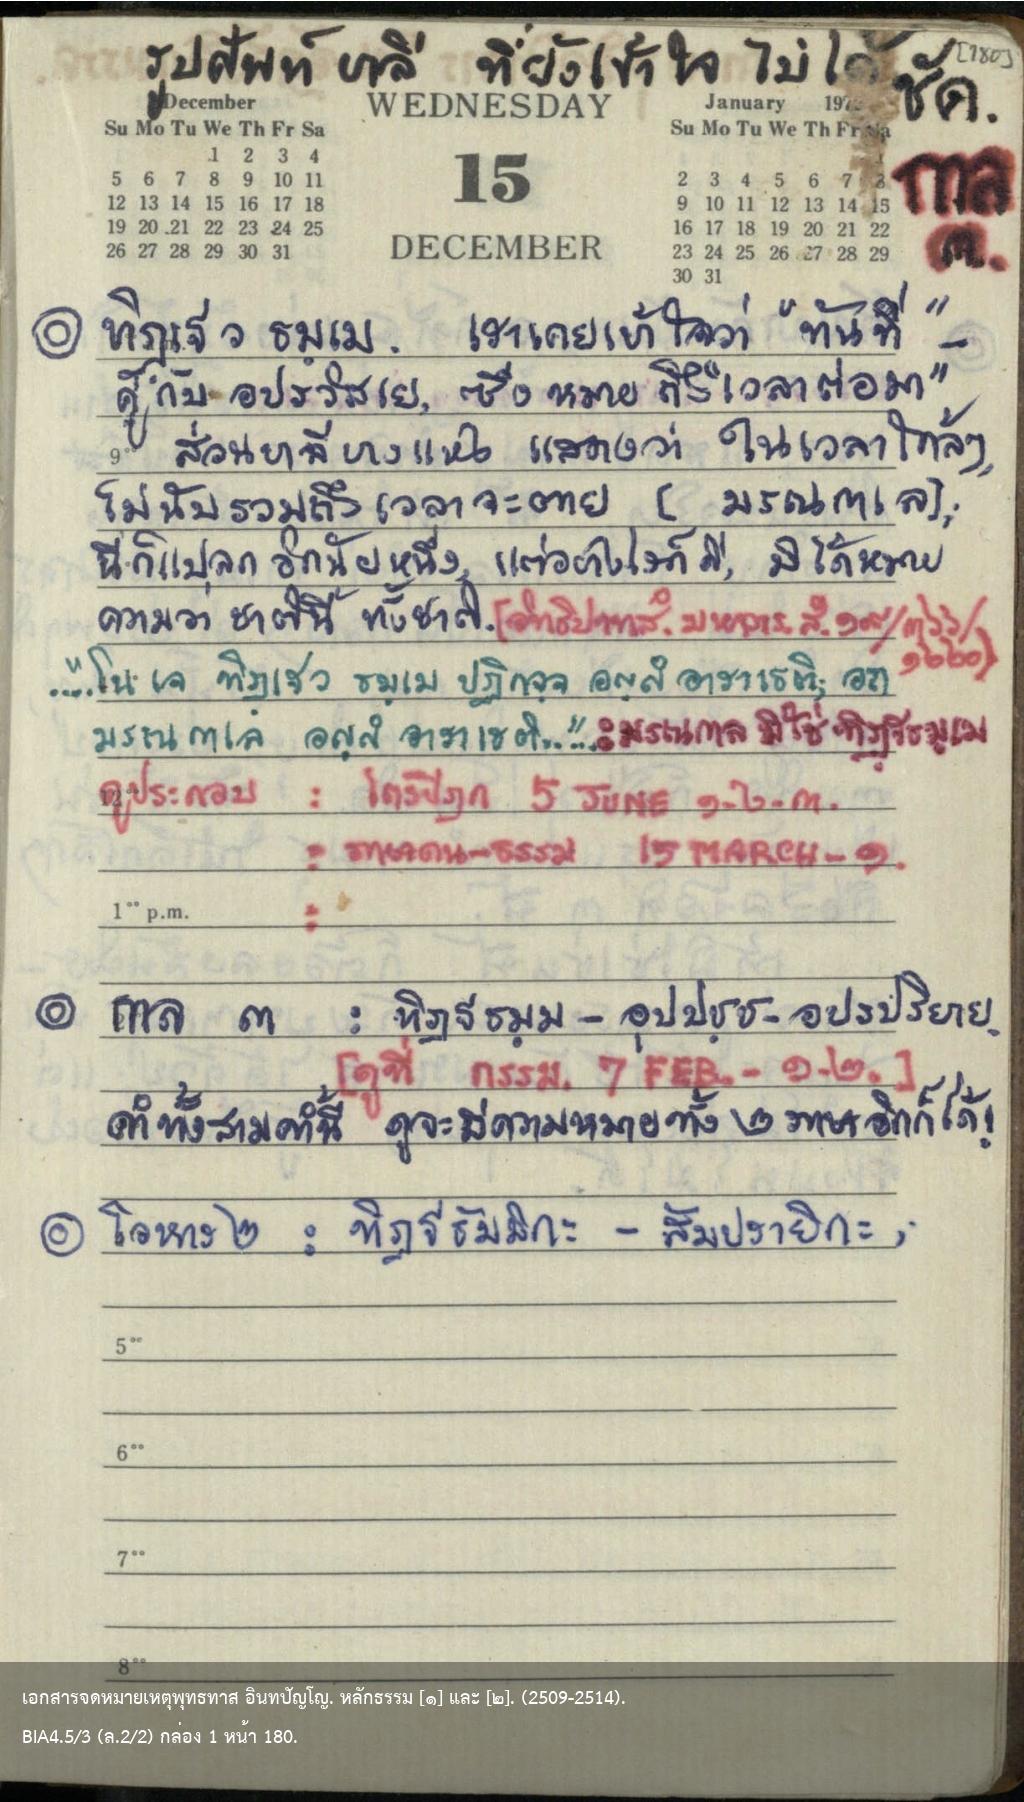 [180]
รูปศัพท์ บาลี ที่ยังเข้าใจ ไม่ได้ ชัด.
December
WEDNESDAY
January 197
Su Mo Tu We Th Fr Sa
Su Mo Tu We Th Fr Sa
1 2 3 4
1
5 6 7 8 9 10 11
15
2 3 4 5 6 7 8
กาล
12 13 14 15 16 17 18
9 10 11 12 13 14 15
19 20 21 22 23 24 25
16 17 18 19 20 21 22
๓.
26 27 28 29 30 31
DECEMBER
23 24 25 26 27 28 29
30 31
ทิฏฺเฐว ธมฺเม. เราเคยเข้าใจว่า "ทันที" –
คู่ กับ อปรํ, ซึ่งหมายถึง "เวลาต่อมา"
9°° ส่วนบาลีบางแห่ง แสดงว่า ในเวลาใกล้ๆ,
ไม่นับรวมถึงเวลาจะตาย [มรณกาเล];
นี่ก็แปลก อีกนัยหนึ่ง, แต่อย่างไรก็ดี, มิได้หมาย
ความว่า ชาตินี้ ทั้งชาติ. [อิทธิปาทสํ. มหาวาร. สํ. ๑๙/๓๖๖/
๑๒๒๐]
...."โน เจ ทิฏฺเฐว ธมฺเม ปฏิกจฺจ อญฺญํ อาราเธติ; อถ
มรณกาเล อญฺญํ อาราเธติ.." : มรณกาล มิใช่ ทิฏฺเฐวธมฺเม
ดูประกอบ : ไตรปิฎก 5 JUNE ๑-๒-๓.
: ภาษาคน-ธรรม 15 MARCH - ๑.
1°° p.m. :
กาล ๓ : ทิฏฐธมฺม – อุปปชฺช – อปรปริยาย.
[ดูที่ กรรม. 7 FEB. - ๑-๒.]
คำทั้งสามคำนี้ ดูจะมีความหมายทั้ง ๒ ภาษาอีกก็ได้!
โวหาร ๒ : ทิฏฐธัมมิกะ – สัมปรายิกะ ;
5°°
6°°
7°°
8°°
เอกสารจดหมายเหตุพุทธทาส อินทปัญโญ. หลักธรรม [๑] และ [๒]. (2509-2514).
BIA4.5/3 (ล.2/2) กล่อง 1 หน้า 180.